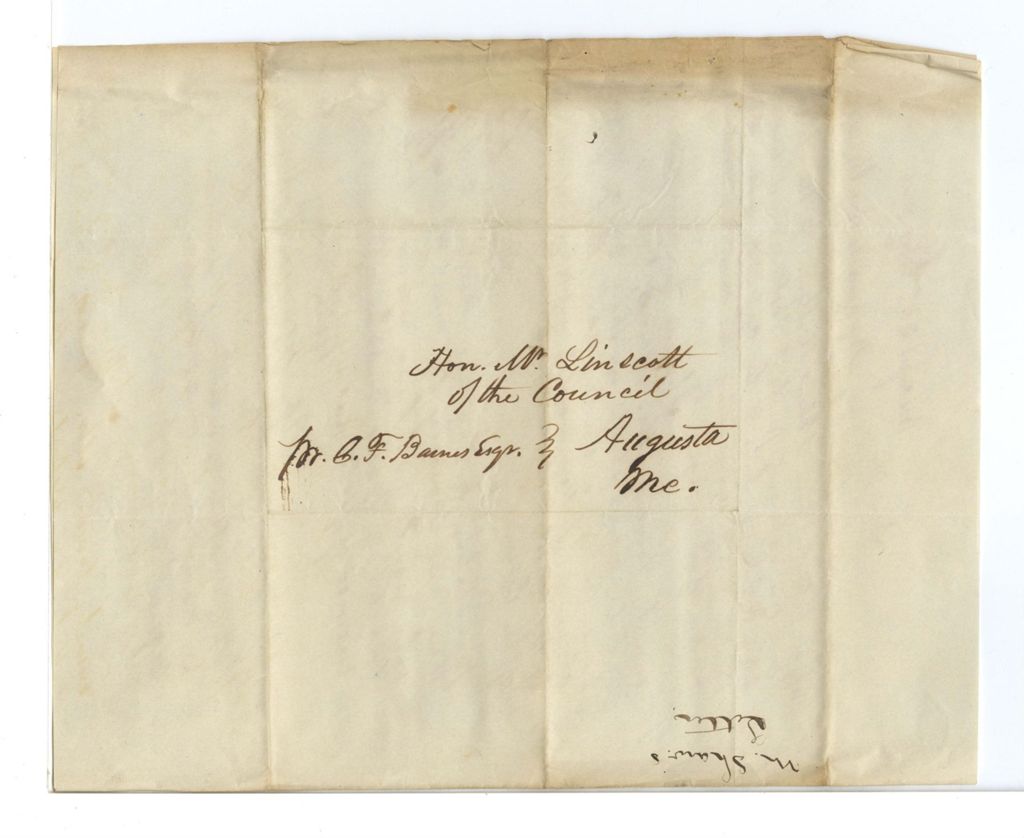 Hon. Mr. Linscott
of the Council
Augusta
Me.
pr. C. F. Barnes Esqr.
M. Shaw's
Letter